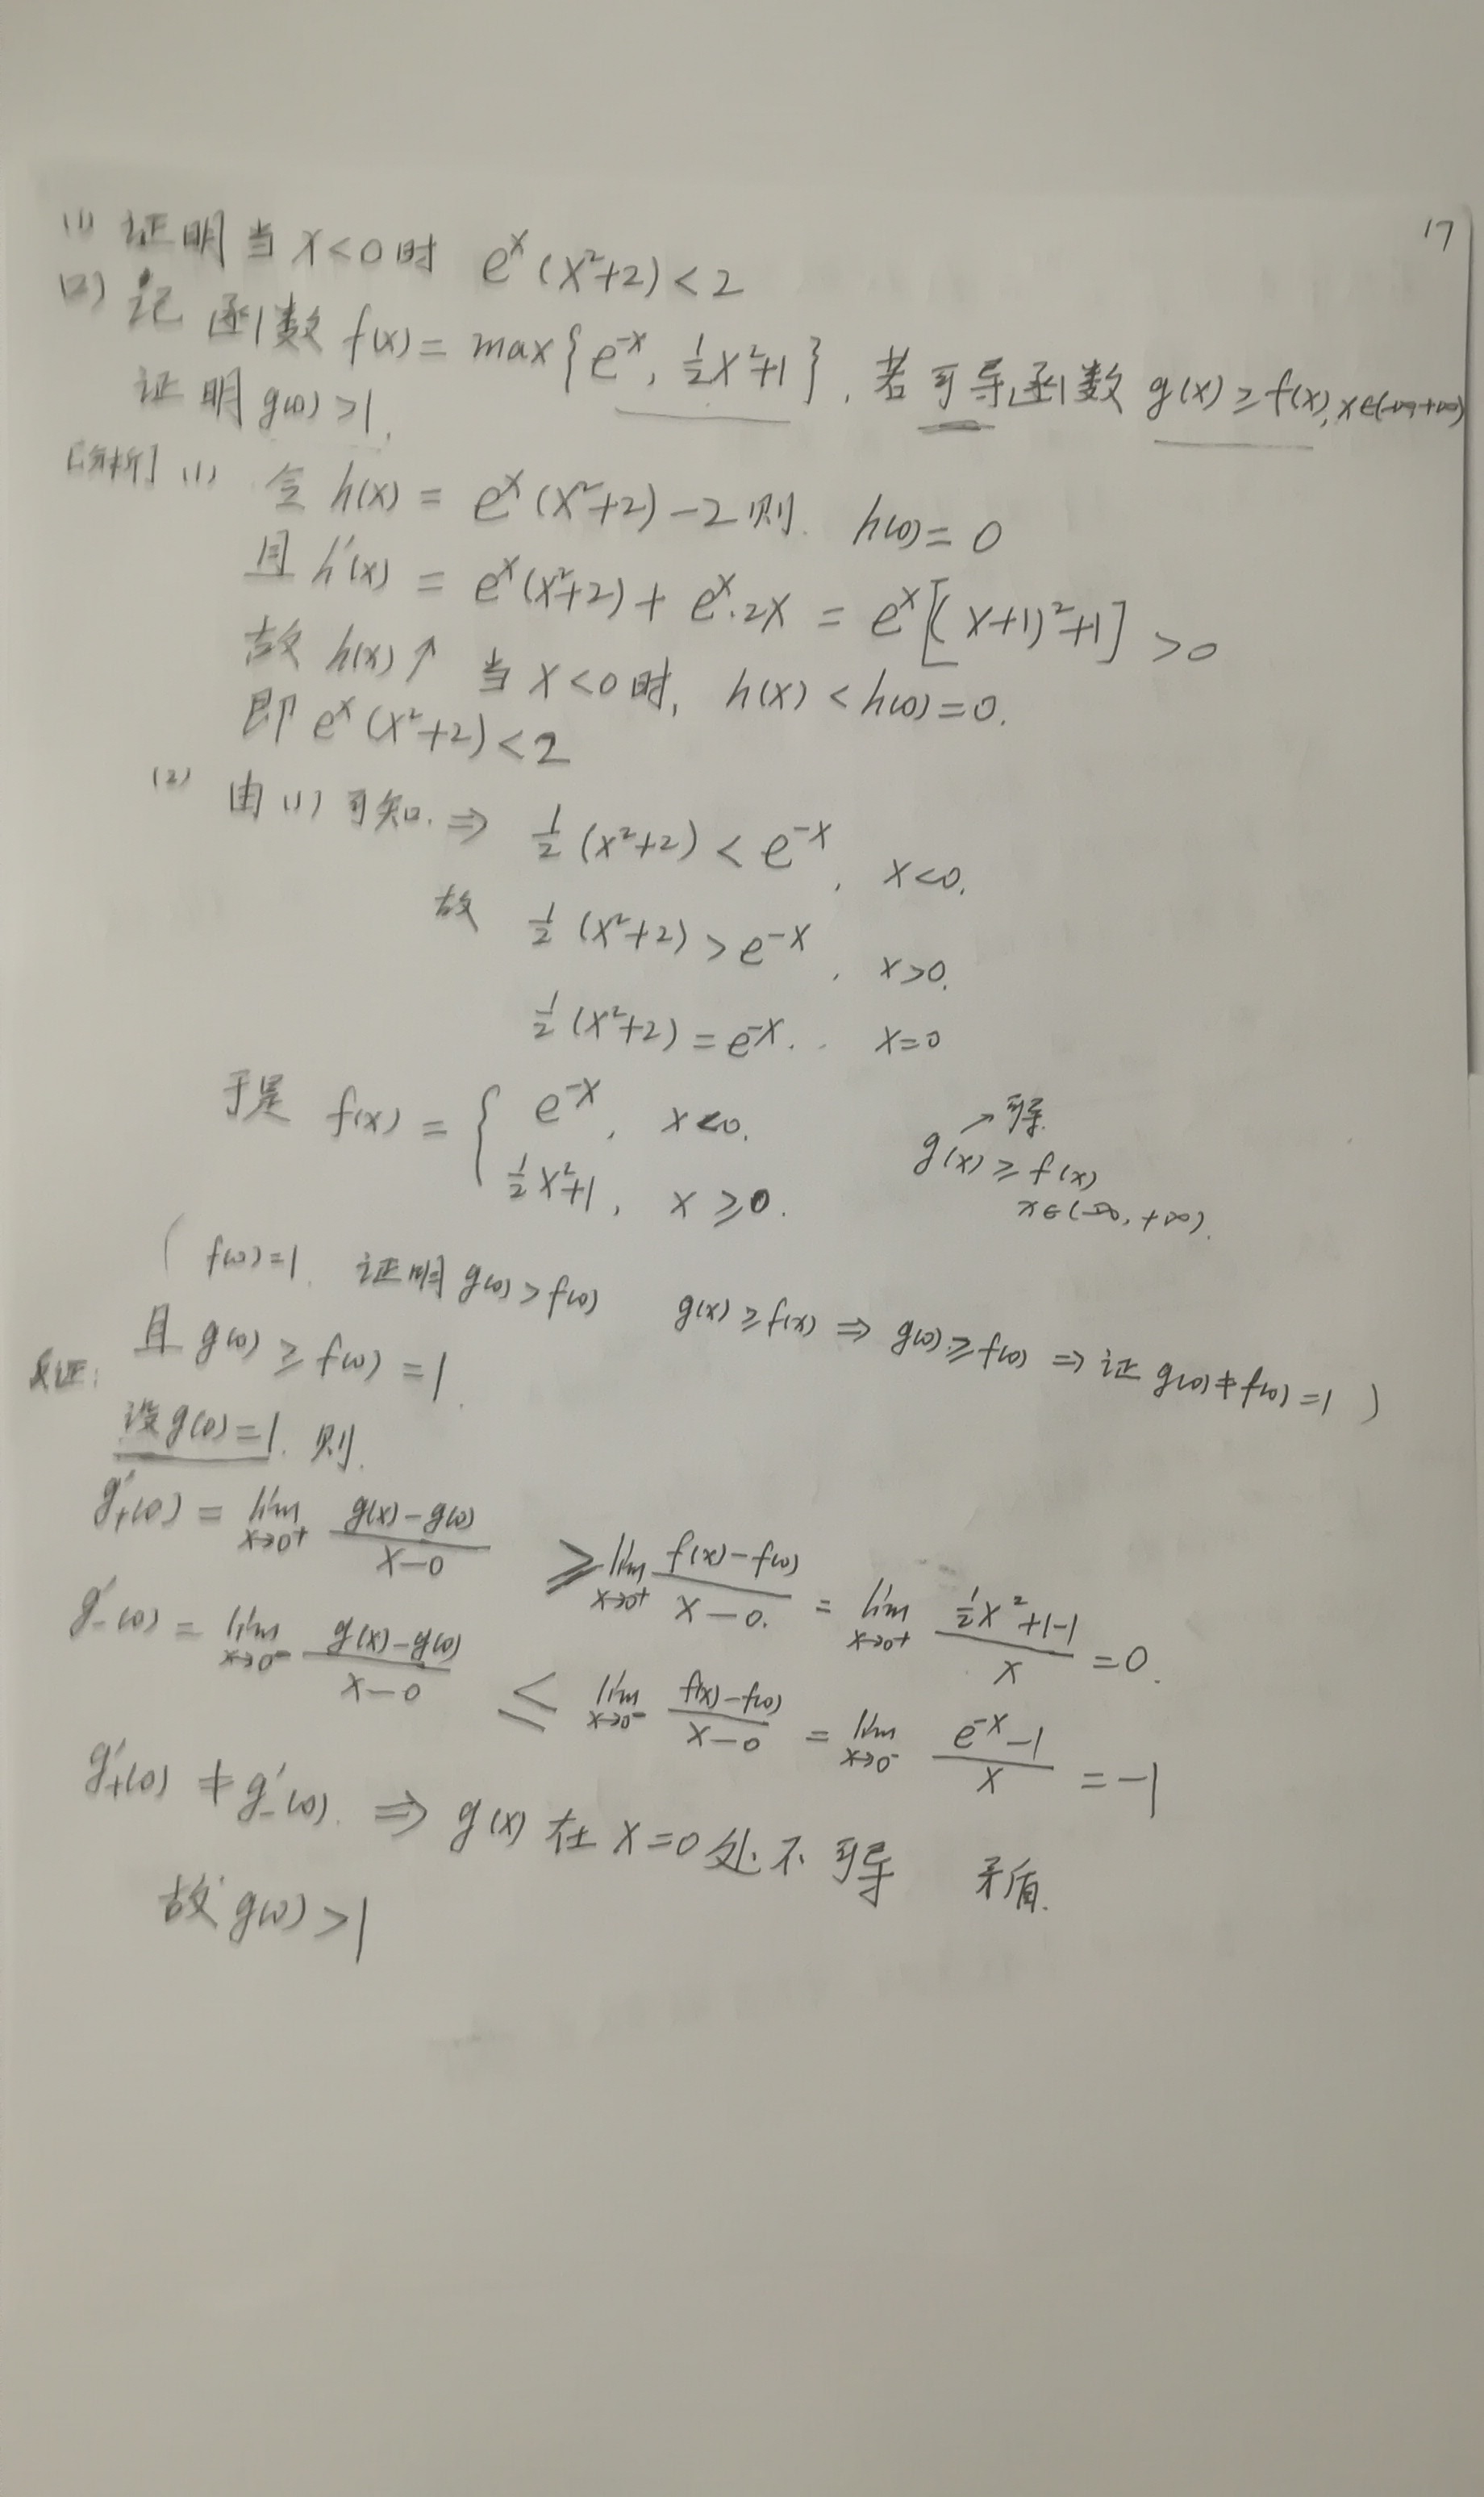 17
(1) 证明当 x<0时 e^x (x²+2) < 2
(2) 记函数 f(x) = max{e^-x, 1/2x²+1}. 若可导函数 g(x) ≥ f(x), x∈(-∞,+∞)
证明 g(0) > 1.
[解析] (1) 令 h(x) = e^x (x²+2) - 2 则. h(0) = 0
且 h'(x) = e^x (x²+2) + e^x·2x = e^x [(x+1)²+1] > 0
故 h(x)↑ 当 x<0时, h(x) < h(0) = 0.
即 e^x (x²+2) < 2
(2) 由(1)可知. ⇒ 1/2 (x²+2) < e^-x, x<0.
故 1/2 (x²+2) > e^-x, x>0.
1/2 (x²+2) = e^-x. x=0
于是 f(x) = { e^-x, x<0.
1/2x²+1, x≥0.
↗可导.
g(x) ≥ f(x)
x∈(-∞, +∞).
( f(0)=1. 证明 g(0) > f(0) g(x) ≥ f(x) ⇒ g(0) ≥ f(0) ⇒ 证 g(0) ≠ f(0) = 1 )
且 g(0) ≥ f(0) = 1.
反证:
设 g(0)=1. 则.
g'₊(0) = lim x→0⁺ (g(x)-g(0))/(x-0) ≥ lim x→0⁺ (f(x)-f(0))/(x-0.) = lim x→0⁺ (1/2x²+1-1)/x = 0.
g'₋(0) = lim x→0⁻ (g(x)-g(0))/(x-0) ≤ lim x→0⁻ (f(x)-f(0))/(x-0) = lim x→0⁻ (e^-x -1)/x = -1
g'₊(0) ≠ g'₋(0). ⇒ g(x) 在 x=0 处不可导 矛盾.
故 g(0) > 1